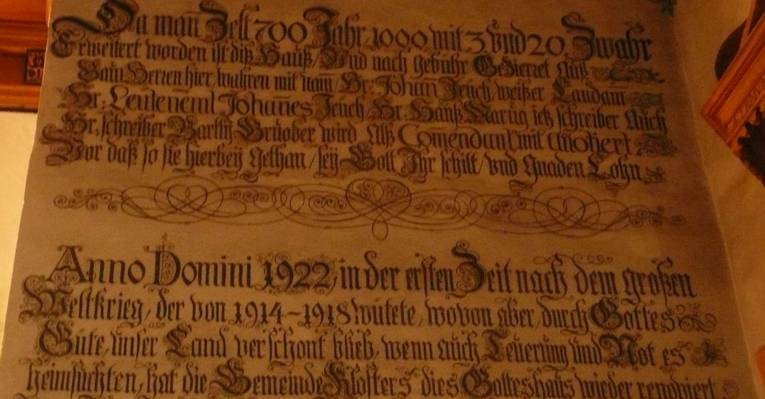 Da man Zelt 700 Jahr 1000 mit 3 vnd 20. Zwahr
Erweitert worden ist diß Hauß, Vnd nach gebühr Gezieret Auß
Bauw Herren hier wahren mit nam Hr. Johan Jeuch weißer Landam
Hr. Leuteneml Johanes Jeuch Hr. Hanß Marug ietz schreiber Auch
Hr. schreiber wird Alß Comendant mit
Vor daß so sie hierbey Gethan / sey Gott Ihr schilt / vnd Gnaden Lohn
Anno Domini 1922, in der ersten Zeit nach dem großen
Weltkrieg, der von 1914-1918 wütete, wovon aber, durch Gottes
Güte, unser Land verschont blieb, wenn auch Teuerung und Not es
heimsuchten, hat die Gemeinde Klosters dies Gotteshaus wieder renoviert